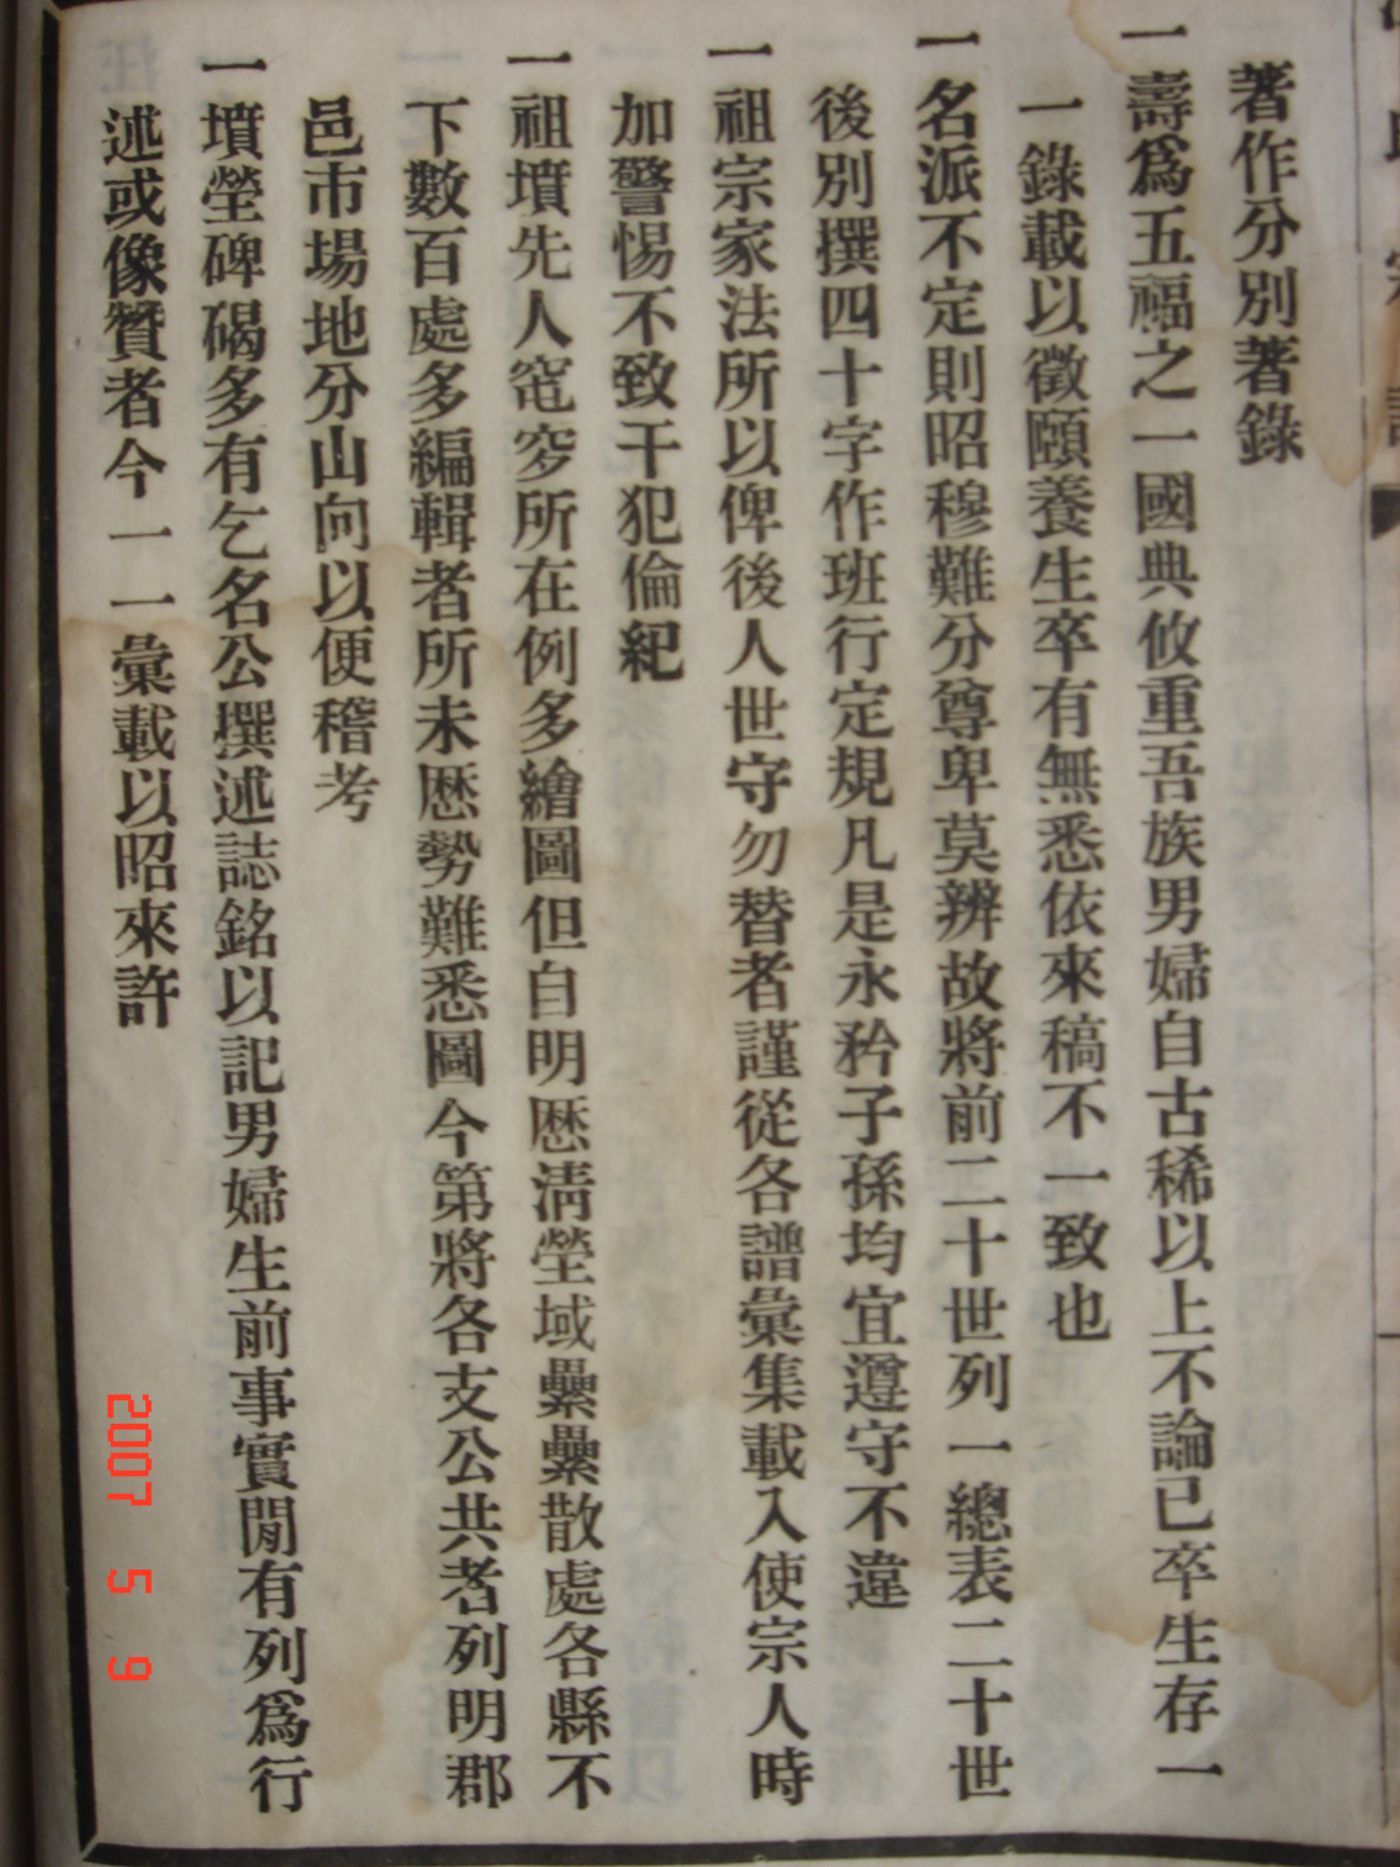 著作分別著錄
一壽爲五福之一國典攸重吾族男婦自古稀以上不論已卒生存一
一錄載以徵頤養生卒有無悉依來稿不一致也
一名派不定則昭穆難分尊卑莫辨故將前二十世列一總表二十世
後別撰四十字作班行定規凡是永矜子孫均宜遵守不違
一祖宗家法所以俾後人世守勿替者謹從各譜彙集載入使宗人時
加警惕不致干犯倫紀
一祖墳先人窀穸所在例多繪圖但自明歷淸塋域纍纍散處各縣不
下數百處多編輯者所未歷勢難悉圖今第將各支公共者列明郡
邑市場地分山向以便稽考
一墳塋碑碣多有乞名公撰述誌銘以記男婦生前事實閒有列爲行
述或像贊者今一一彙載以昭來許
2007 5 9